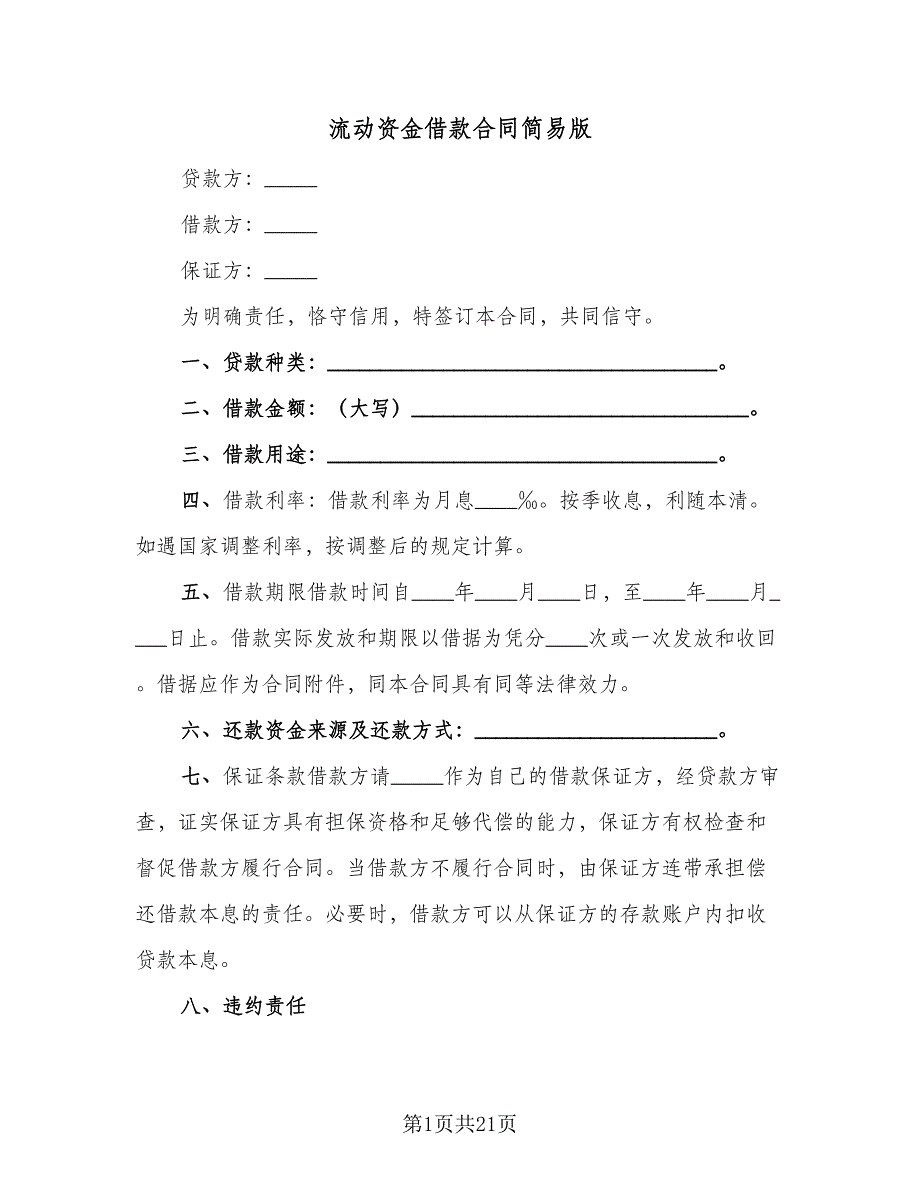 流动资金借款合同简易版
贷款方：_____
借款方：_____
保证方：_____
为明确责任，恪守信用，特签订本合同，共同信守。
一、贷款种类：_____________________________________。
二、借款金额：（大写）________________________________。
三、借款用途：_____________________________________。
四、借款利率：借款利率为月息____‰。按季收息，利随本清。
如遇国家调整利率，按调整后的规定计算。
五、借款期限借款时间自____年____月____日，至____年____月_
___日止。借款实际发放和期限以借据为凭分____次或一次发放和收回
。借据应作为合同附件，同本合同具有同等法律效力。
六、还款资金来源及还款方式：_______________________。
七、保证条款借款方请_____作为自己的借款保证方，经贷款方审
查，证实保证方具有担保资格和足够代偿的能力，保证方有权检查和
督促借款方履行合同。当借款方不履行合同时，由保证方连带承担偿
还借款本息的责任。必要时，借款方可以从保证方的存款账户内扣收
贷款本息。
八、违约责任
第1页共21页